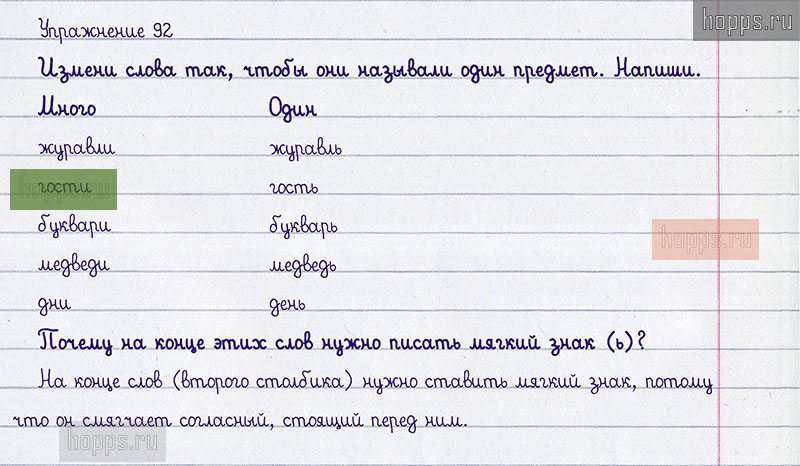 hopps.ru
Упражнение 92
Измени слова так, чтобы они называли один предмет. Напиши.
Много Один
журавли журавль
гости гость
hopps.ru
буквари букварь
hopps.ru
медведи медведь
дни день
Почему на конце этих слов нужно писать мягкий знак (ь)?
На конце слов (второго столбика) нужно ставить мягкий знак, потому
что он смягчает согласный, стоящий перед ним.
hopps.ru